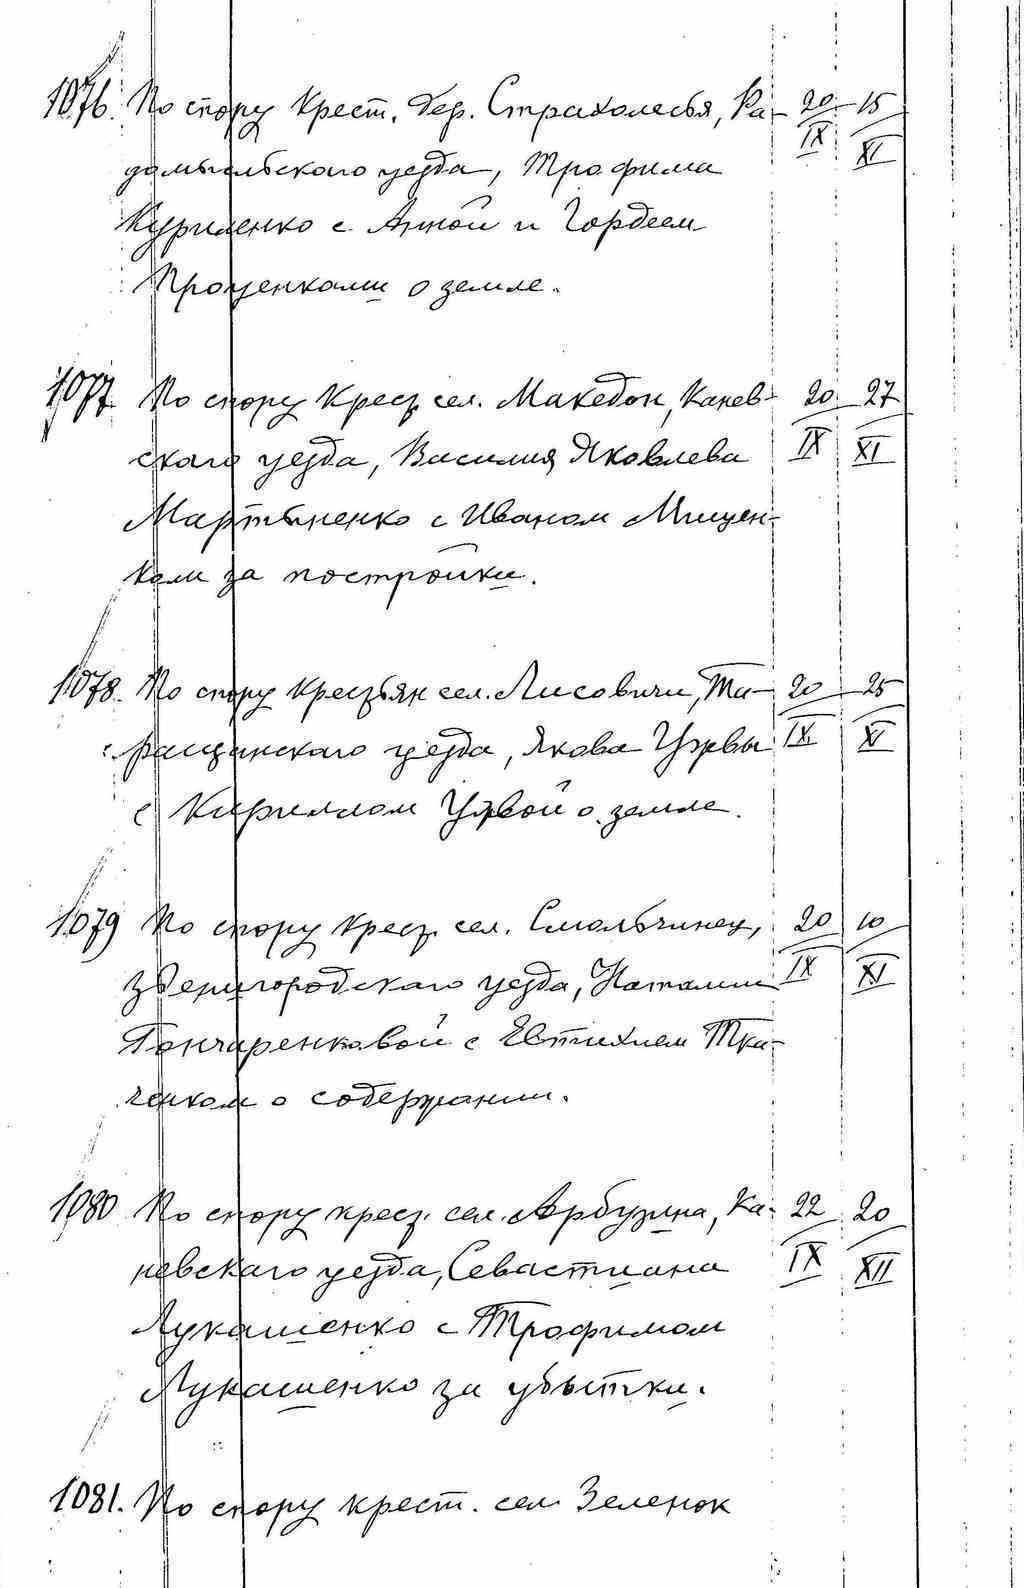 1076. По спору Крест. дер. Страхолесья, Ра- 20 15
IX XI
домысльского уезда, Трофима
Куриленко с Анной и Гордеем
Проценками о земле.
1077. По спору Крест. сел. Македон, Канев- 20 27
ского уезда, Василия Яковлева IX XI
Мартыненко с Иваном Мицен-
ком за постройки.
1078. По спору Крестьян сел. Лисовичи, Та- 20 25
ращанского уезда, Якова IX XI
с Кириллом о земле.
1079 По спору Крест. сел. Смольчинец, 20 10
Звенигородского уезда, Наталии IX XI
Гончаренковой с Евтихием Тка-
ченком о содержании.
1080 По спору крест. сел. Арбузина, Ка- 22 20
невского уезда, Севастиана IX XII
Лукашенко с Трофимом
Лукашенко за убытки.
1081. По спору крест. сел. Зеленок